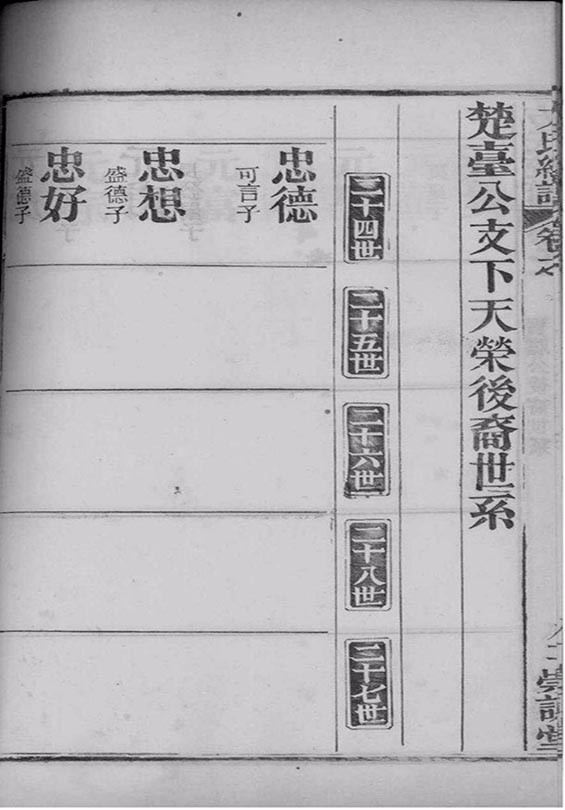 楚臺公支下天榮後裔世系
二十四世
二十五世
二十六世
二十八世
二十七世
忠德
可言子
忠想
盛德子
忠好
盛德子